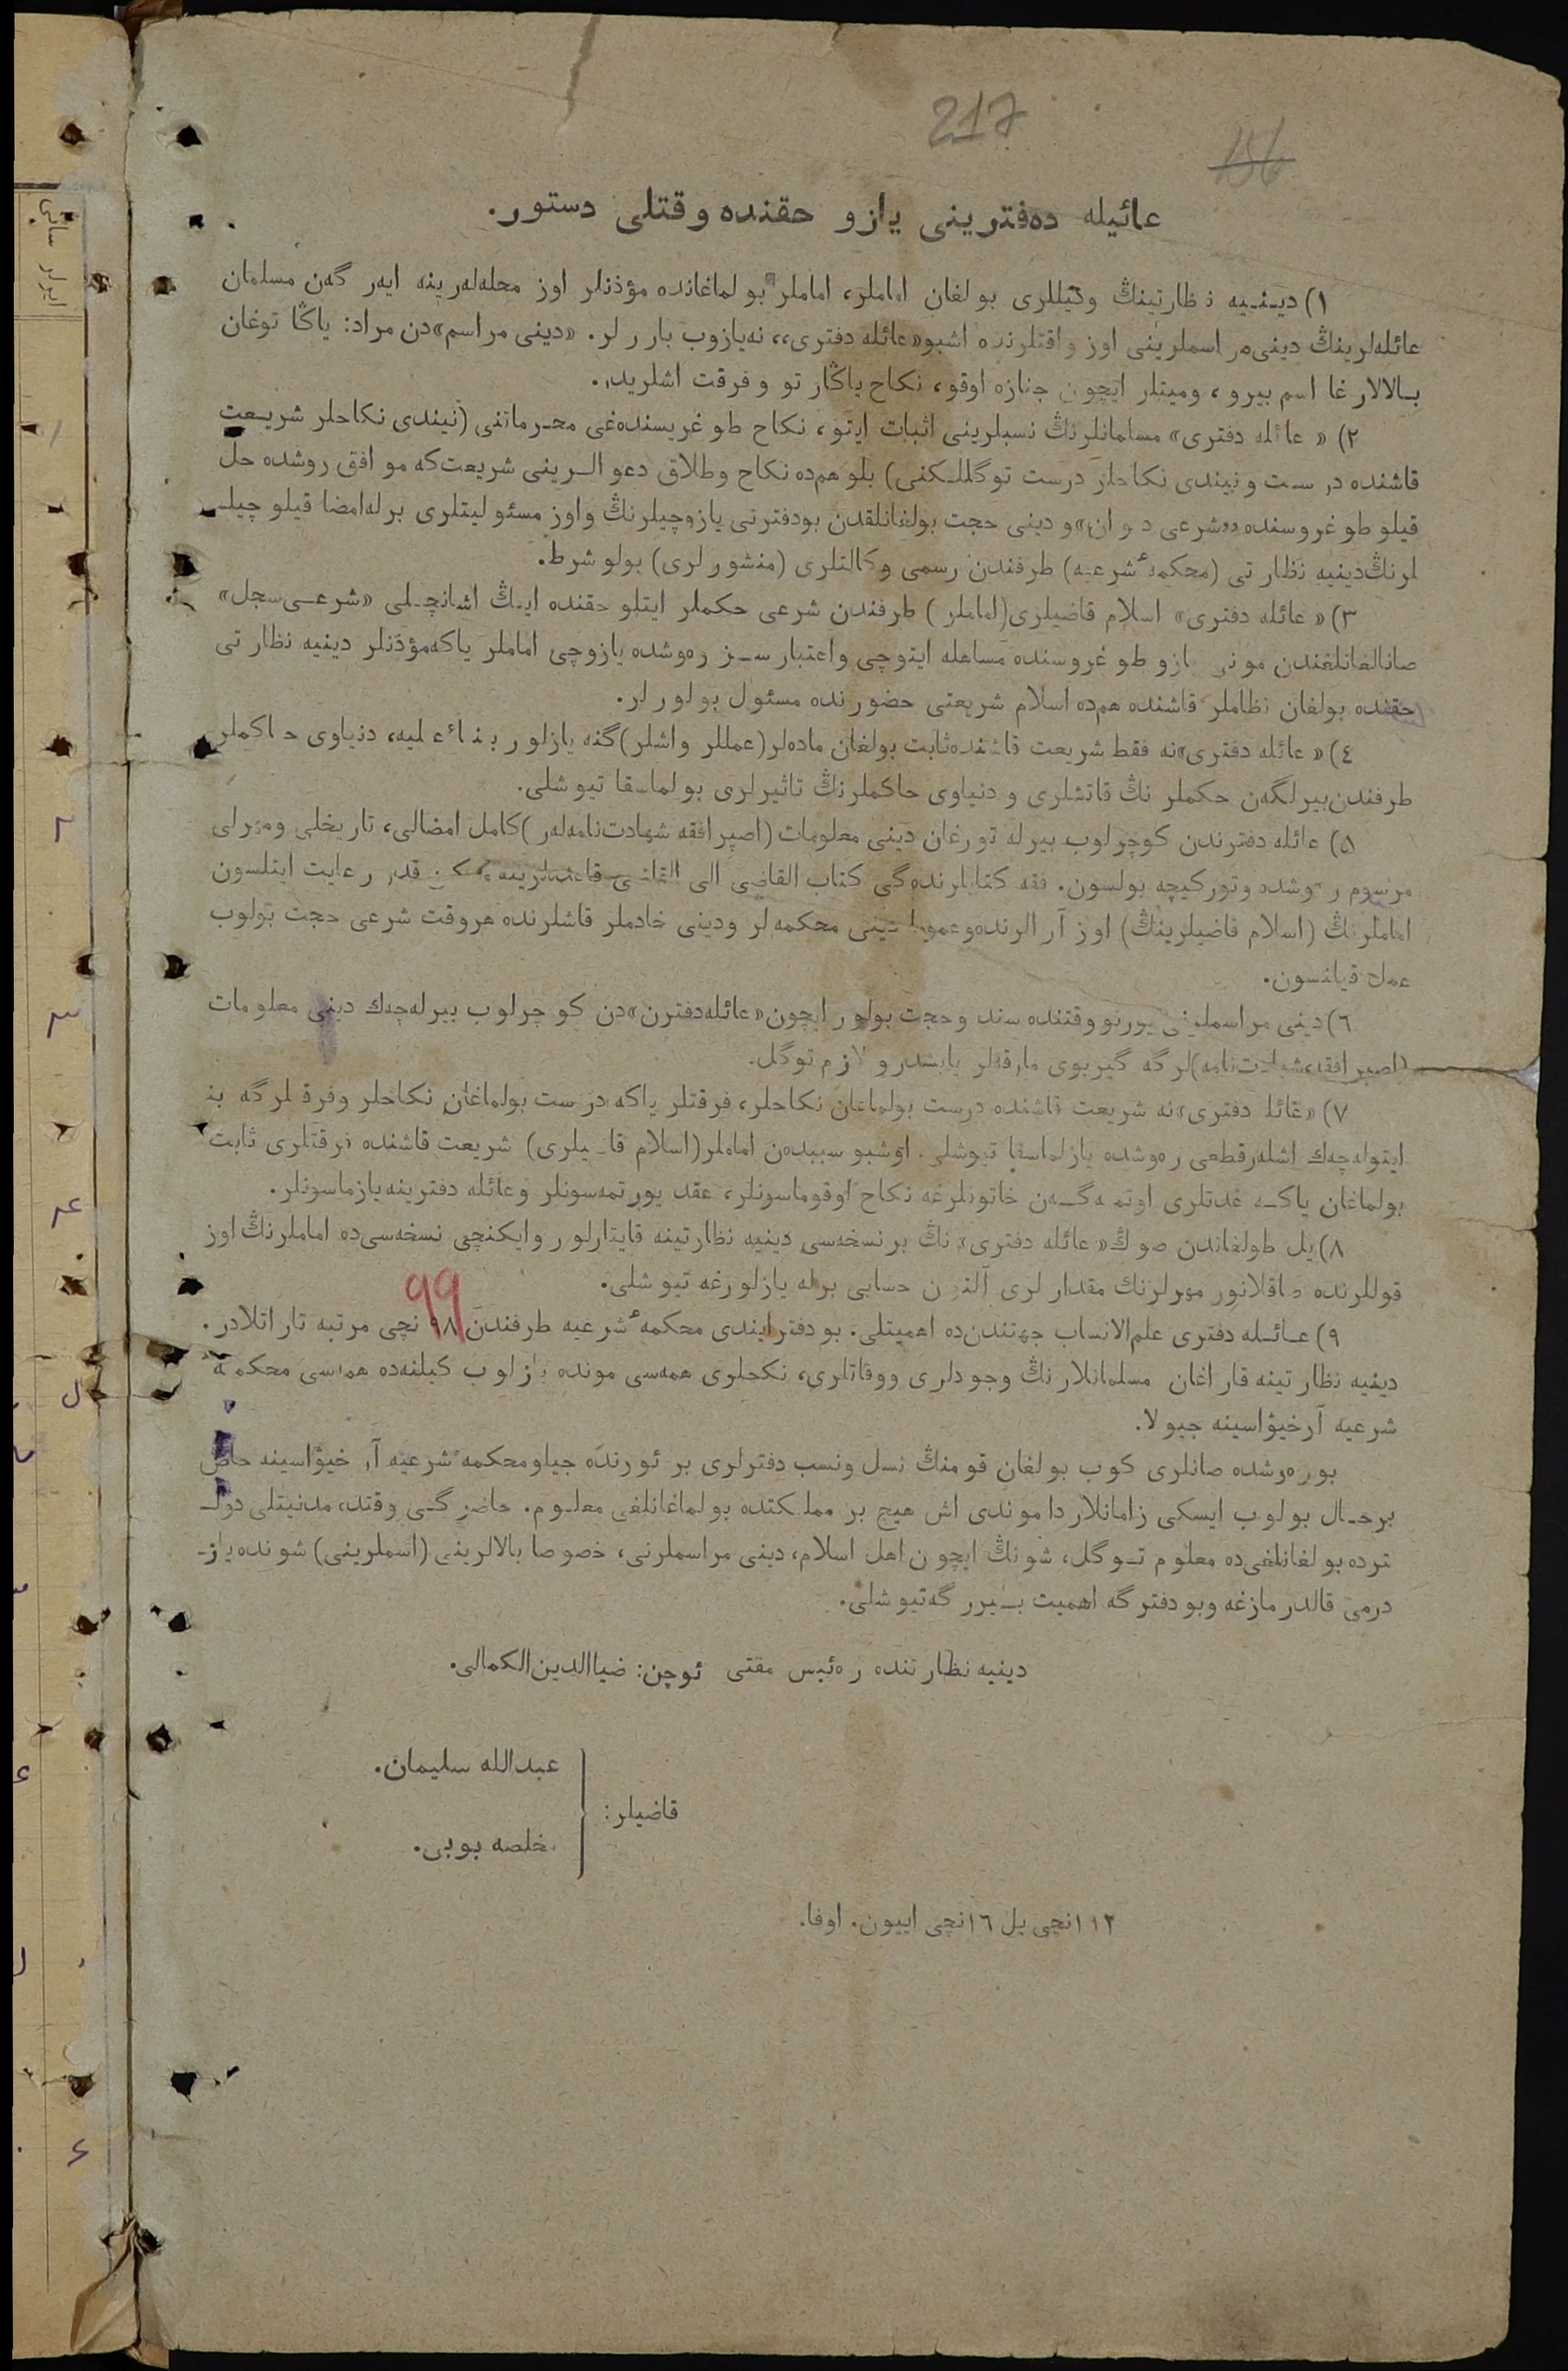 217
156
عائیله ده‌فترینی یازو حقنده وقتلی دستور.
١) دینیه نظارتینڭ وکیللری بولغان اماملر، اماملر بولماغانده مؤذنلر اوز محله‌لەرینه ایەر گەن مسلمان
عائله‌لرینڭ دینی مراسملرینی اوز واقتلرنده اشبو «عائله دفتری»، نه‌یازوب بارر لر. «دینی مراسم»دن مراد: یاڭا توغان
بالالارغا اسم بیرو، ومیتلر ایچون جنازه اوقو، نکاح یاڭارتو و فرقت اشلریدر.
٢) «عائله دفتری» مسلمانلرنڭ نسبلرینی اثبات ایتو، نکاح طوغریسنده‌غی محرماتنی (نیندی نکاحلر شریعت
قاشنده درست و نیندی نکاحلر درست توگللکنی) بلو هم‌ده نکاح وطلاق دعوالرینی شریعت‌که موافق روشده حل
قیلو طوغروسنده «شرعی دیوان» و دینی حجت بولغانلقدن بودفترنی یازوچیلرنڭ واوز مسئولیتلری برله‌امضا قیلوچیلـ
لرنڭ‌دینیه نظارتی (محکمهٔ شرعیه) طرفندن رسمی وکالتلری (منشورلری) بولو شرط.
٣) «عائله دفتری» اسلام قاضیلری(اماملر) طرفندن شرعی حکملر ایتلو حقنده ایڭ اشانچلی «شرعی‌سجل»
صانالغانلغندن مونی یازو طوغروسنده مساهله ایتوچی واعتبارسز ره‌وشده یازوچی اماملر یاکه‌مؤذنلر دینیه نظارتی
حقنده بولغان نظاملر قاشنده هم‌ده اسلام شریعتی حضورنده مسئول بولورلر.
٤) «عائله دفتری»نه فقط شریعت قاشنده‌ثابت بولغان ماده‌لر(عمللر واشلر)گنه یازلور بناءً علیه، دنیاوی حاکملر
طرفندن‌بیرلگەن حکملر نڭ قاتشلری و دنیاوی حاکملرنڭ تاثیرلری بولماسقا تیوشلی.
٥) عائله دفترندن کوچرلوب بیرله تورغان دینی معلومات (اصپرافقه شهادت‌نامه‌لەر) کامل امضالی، تاریخلی ومهرلی
مرسوم ره‌وشده وتورکیچه بولسون. فقه کتابلرنده‌گی کتاب القاضی الی القاضی قاعده‌لرینه ممکن قدر رعایت ایتلسون
اماملرنڭ (اسلام قاضیلرینڭ) اوز آرالرنده‌وعموما دینی محکمه‌لر ودینی خادملر قاشلرنده هروقت شرعی حجت بولوب
عمل قیلنسون.
٦)دینی مراسملرنی یورتو وقتنده سند وحجت بولور ایچون«عائله‌دفترن»دن کوچرلوب بیرله‌چەك دینی معلومات
(اصپرافقه،شهادت‌نامه)لرگه گیربوی مارقه‌لر یابشدرو لازم توگل.
٧) «عائله دفتری»نه شریعت قاشنده درست بولماغان نکاحلر، فرقتلر یاکه درست بولماغان نکاحلر وفرقتلرگه بنا
ایتوله‌چەك اشلەرقطعی ره‌وشده یازلماسقا تیوشلی. اوشبو سببدەن اماملر(اسلام قاضیلری) شریعت قاشنده فرقتلری ثابت
بولماغان یاکه عدتلری اوتمەگەن خاتونلرغه نکاح اوقوماسونلر، عقد یورتمەسونلر وعائله دفترینه‌یازماسونلر.
٨)یل طولغاندن صوڭ«عائله دفتری» نڭ برنسخه‌سی دینیه نظارتینه قایتارلور وایکنچی نسخه‌سی‌ده اماملرنڭ اوز
قوللرنده صاقلانور مهرلرنك مقدارلری آلتون حسابی برله یازلورغه تیوشلی.
٩) عائله دفتری علم‌الانساب جهتندن‌ده اهمیتلی. بو دفتر ایندی محکمهٔ شرعیه طرفندن ٩٨ نچی مرتبه تاراتلادر.
99
دینیه نظارتینه قاراغان مسلمانلارنڭ وجودلری ووفاتلری، نکحلری همه‌سی مونده یازلوب کیلنه‌ده همه‌سی محکمهٔ
شرعیه آرخیۋاسینه جیولا.
بو ره‌وشده صانلری کوب بولغان قومنڭ نسل ونسب دفترلری بر ئورنده جیلومحکمهٔ شرعیه آرخیۋاسینه خاص
برحال بولوب ایسکی زامانلاردا موندی اش هیچ بر مملکتده بولماغانلغی معلوم. حاضرگی وقتده، مدنیتلی دولـ
ترده بولغانلغی‌ده معلوم توگل، شونڭ ایچون اهل اسلام، دینی مراسملرنی، خصوصا بالالرینی (اسملرینی) شونده‌یازـ
درمی قالدرمازغه وبو دفترگه اهمیت بیررگه‌تیوشلی.
دینیه نظارتنده ره‌ئیس مفتی ئوچن: ضیاالدین‌الکمالی.
قاضیلر:
عبدالله سلیمان.
مخلصه بوبی.
١٦نچی اییون. اوفا.